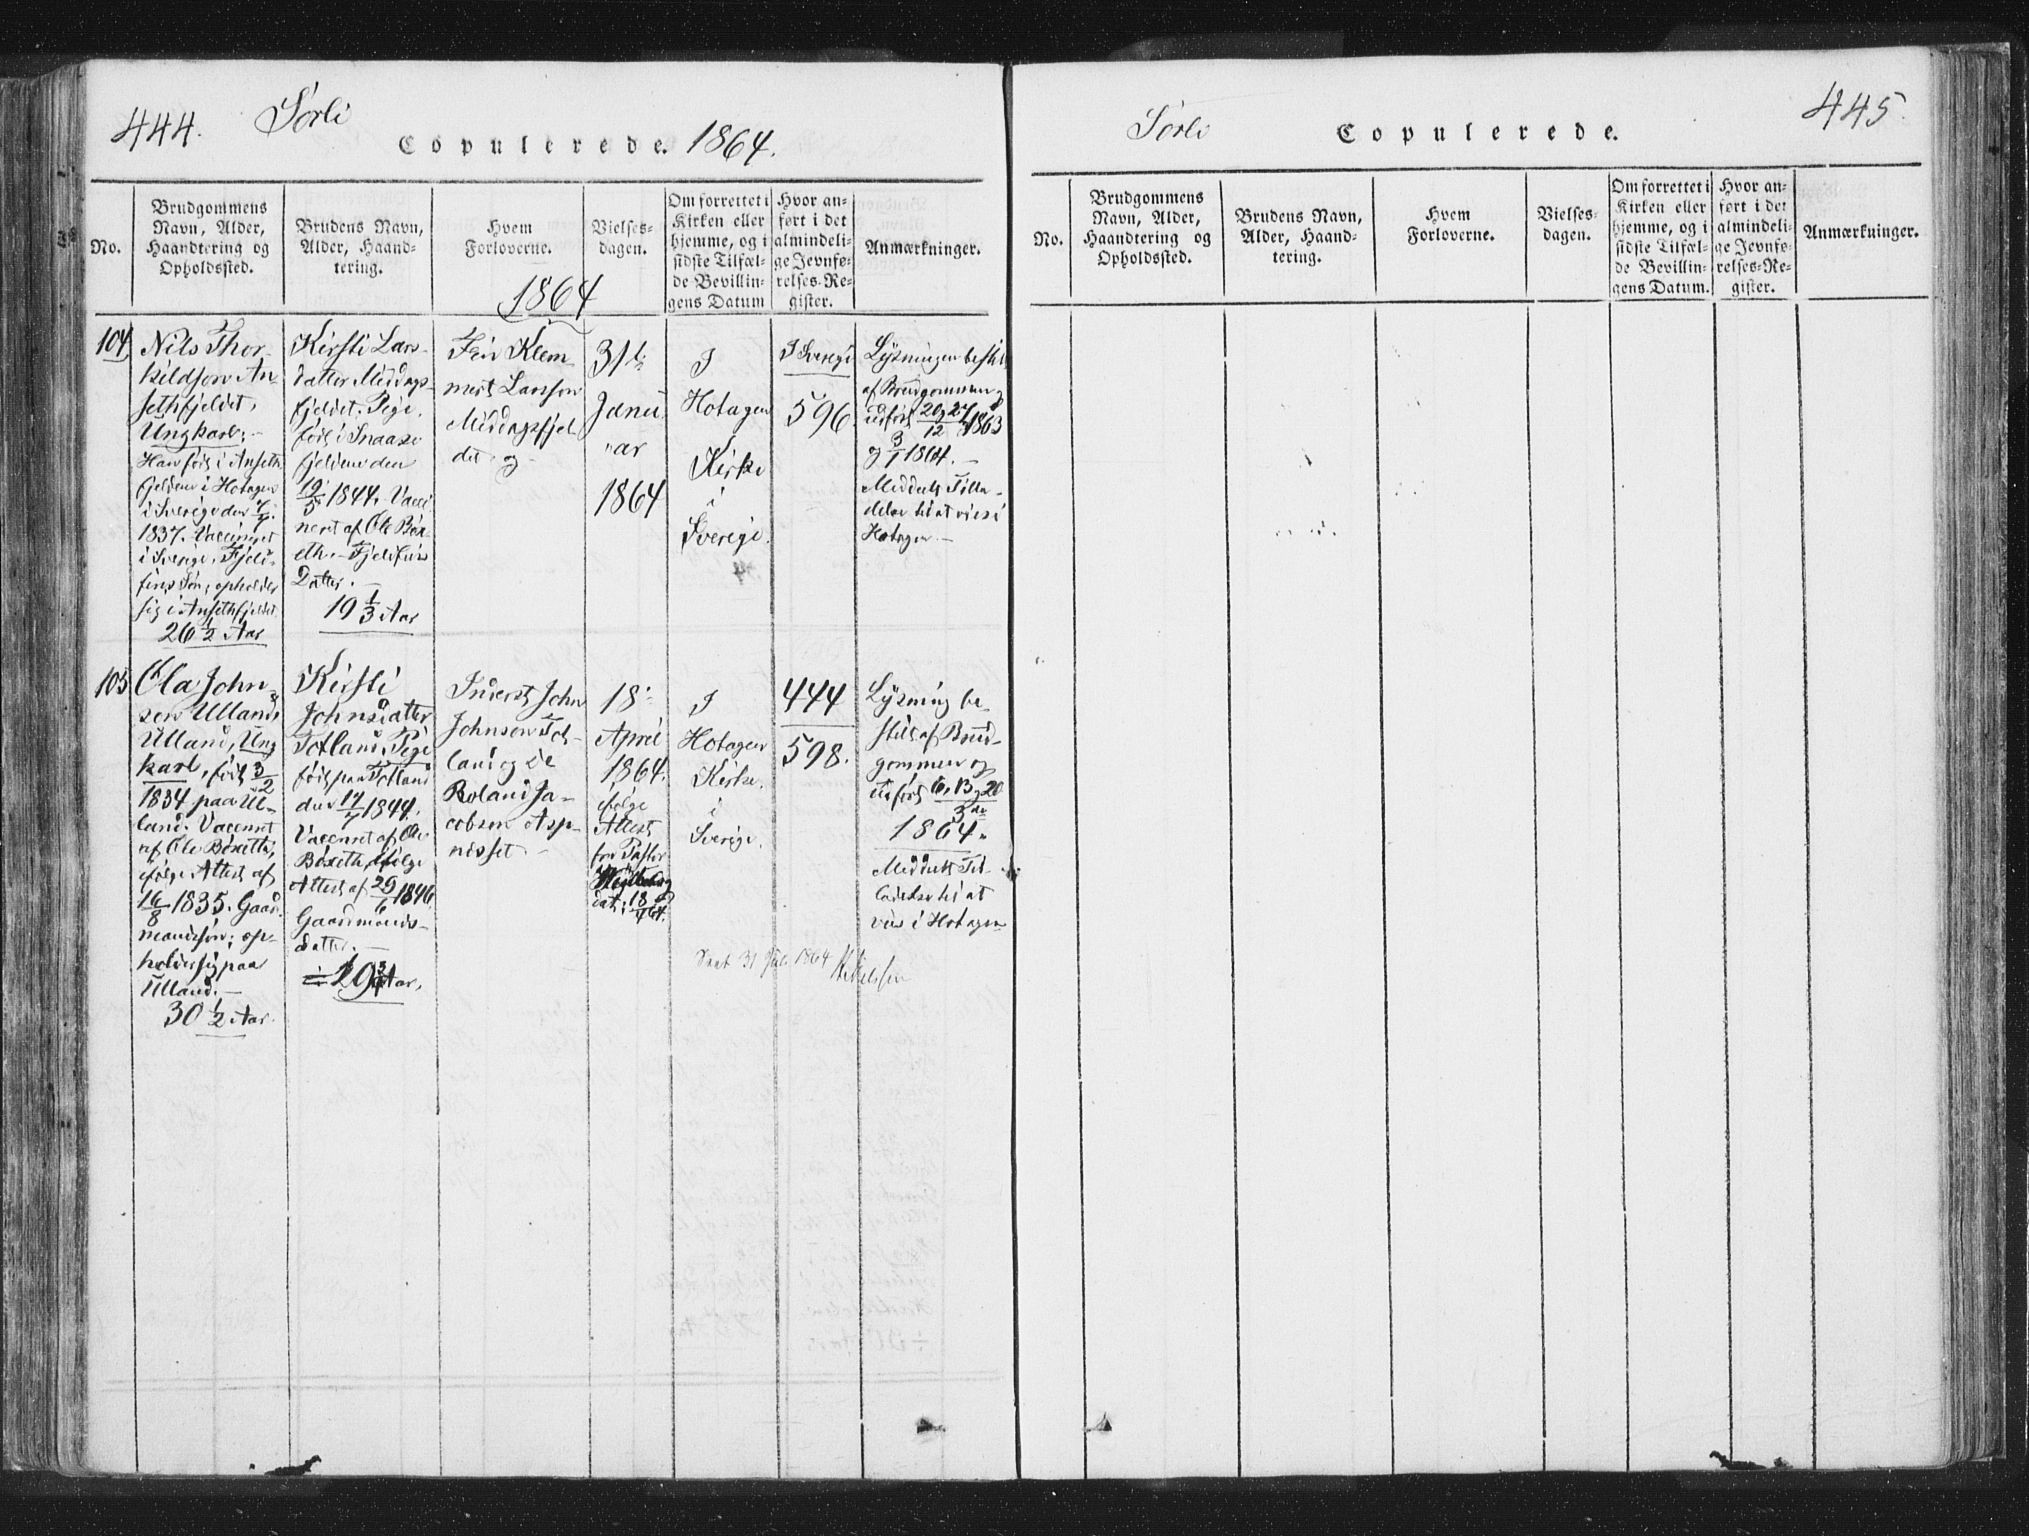 444. Sørli
Copulerede. 1864.
No.
Brudgommens
Navn, Alder,
Haandtering og
Opholdssted.
Brudens Navn,
Alder, Haand-
tering.
Hvem
Forloverne.
Vielses-
dagen.
Om forrettet i
Kirken eller
hjemme, og i
sidste Tilfæl-
de Bevillin-
gens Datum
Hvor an-
ført i det
almindeli-
ge Jevnfø-
relses-Re-
gister.
Anmærkninger.
1864
104
Nils Thor-
keldson An-
sethfjeldet,
Ungkarl;-
Han født i Anseth
fjeldene i Hotagen
i Sverige den
1837. Vaccineret
i Sverige, Fjeld-
fins Søn, opholder
sig i Ansethfjeldet.
26 1/2 Aar
Kirsti Lars-
datter Middags-
fjeldet, Pige,
født i Snaase
fjeldene den
19/5 1844. Vacci
neret af Ole Böx-
eth. Fjeldfins
Datter.
19 1/3 Aar
Fin Klem-
met Larsson
Middagsfjel
det og
31te
Janu
ar
1864
I
Hotagen
Kirke
i
Sverige.
I Sverige
596.
Lysningen bestilt
af Brudgommen og
udført 20 og 27/12 1863
og 3/1 1864.
Meddeelt Tilla-
delse til at vies i
Hotagen.
105
Ola John
son Ulland,
Ulland, Ung
karl, født 3/2
1834 paa Ul-
land. Vaccinret
af Ole Böxeth,
ifølge Attest af
16/8 1835. Gaard
mandssøn; op-
holder sig paa
Ulland.
30 1/2 Aar.
Kirsti
Johnsdatter
Totland, Pige
født paa Totland
den 14/7 1844.
Vaccinret af Ole
Böxeth, ifølge
Attest af 29/6 1846.
Gaardmands-
datter.
Inderst John
Johnson Tot-
land og
Roland Ja-
cobsen Asp-
nesset.
18
April
1864.
ifølge
Attest
fra Pastor
dat. 18/4 64.
I
Hotagen
Kirke.
i
Sverige.
444
598.
Lysning be-
stilt af Brud-
gommen og
udført 6, 13 og 20/3
1864.
Meddeelt Til-
ladelse til at
vies i Hotagen
Seet 31 Juli 1864
445.
Sørli
Copulerede.
No.
Brudgommens
Navn, Alder,
Haandtering og
Opholdssted.
Brudens Navn,
Alder, Haand-
tering.
Hvem
Forloverne.
Vielses-
dagen.
Om forrettet i
Kirken eller
hjemme, og i
sidste Tilfæl-
de Bevillin-
gens Datum.
Hvor an-
ført i det
almindeli-
ge Jevnfø-
relses-Re-
gister.
Anmærkninger.